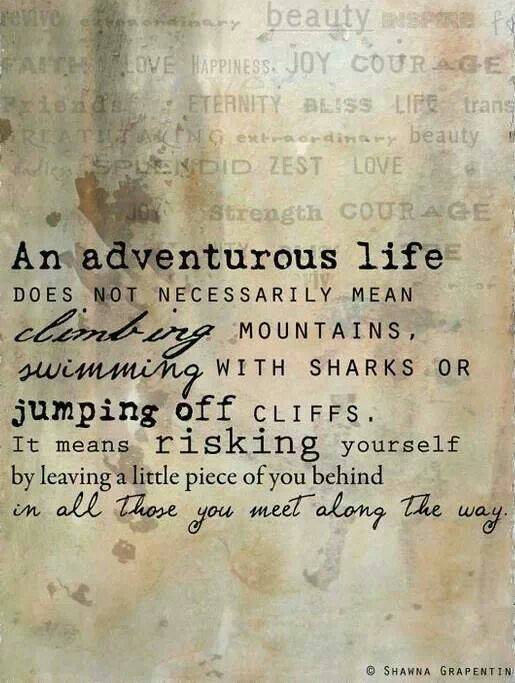 revive extraordinary beauty INSPIRE
FAITH LOVE HAPPINESS. JOY COURAGE
Friends ETERNITY BLISS LIFE trans
BREATHTAKING extraordinary beauty
endless SPLENDID ZEST LOVE
JOY Strength COURAGE
An adventurous life
DOES NOT NECESSARILY MEAN
climbing MOUNTAINS,
swimming WITH SHARKS OR
jumping off CLIFFS.
It means risking yourself
by leaving a little piece of you behind
in all those you meet along the way.
© SHAWNA GRAPENTIN